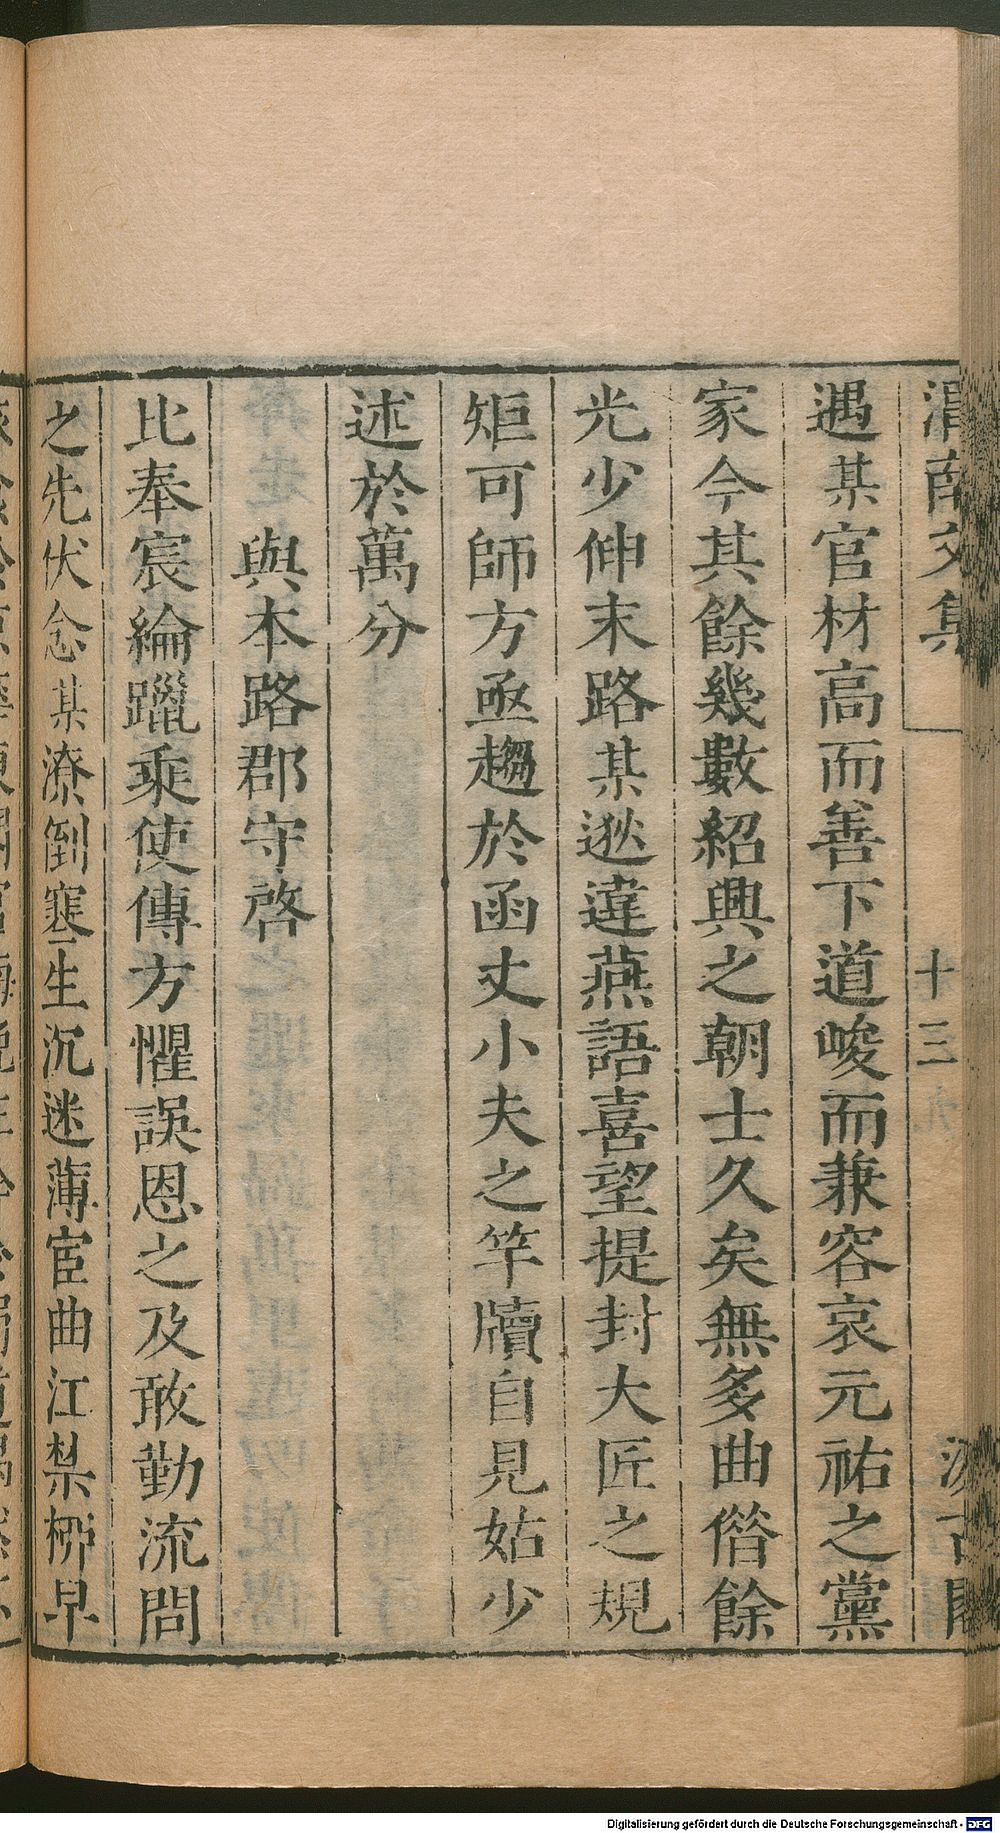 渭南文集 十三 汲古閣
遇某官材高而善下道峻而兼容哀元祐之黨
家今其餘幾數紹興之朝士久矣無多曲借餘
光少伸末路某逖違燕語喜望提封大匠之規
矩可師方亟趨於函丈小夫之竿牘自見姑少
述於萬分
與本路郡守啓
比奉宸綸躐乘使傳方懼誤恩之及敢勤流問
之先伏念某潦倒蹇生沉迷薄宦曲江禁柳早
Digitalisierung gefördert durch die Deutsche Forschungsgemeinschaft - DFG